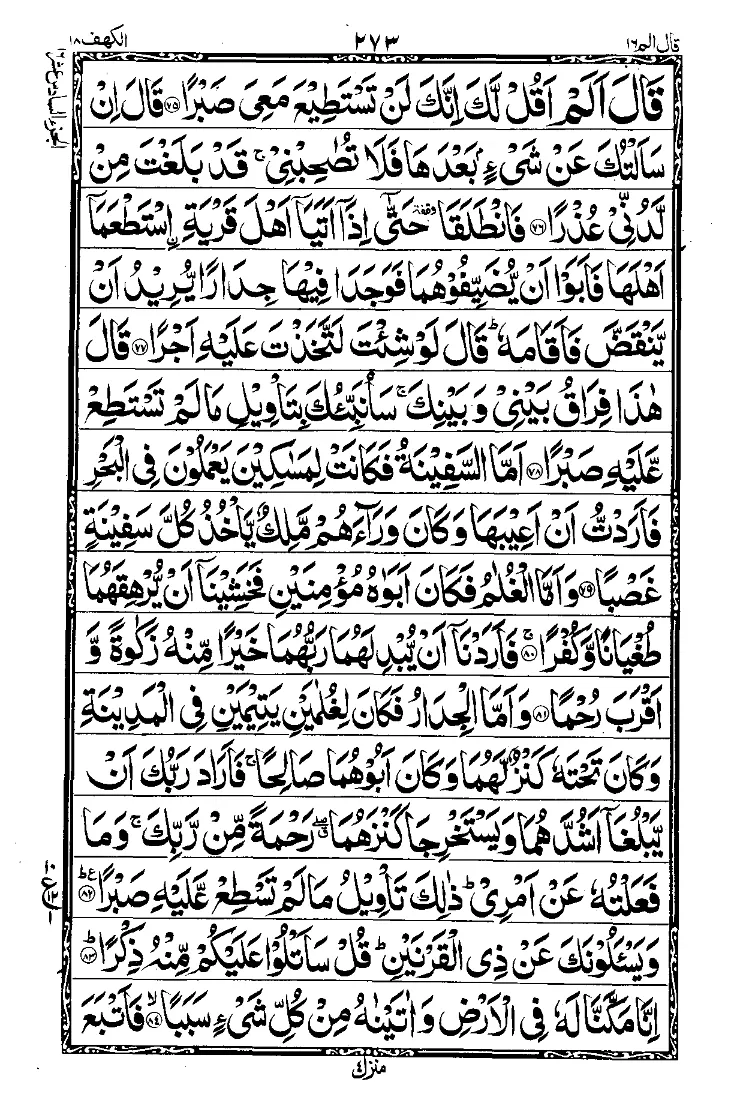 قال الم ١٦ ٢٧٣ الكهف ١٨
الجزء السادس عشر ١٦
قَالَ اَلَمْ اَقُلْ لَّكَ اِنَّكَ لَنْ تَسْتَطِيْعَ مَعِىَ صَبْرًا ﴿٧٥﴾ قَالَ اِنْ
سَاَلْتُكَ عَنْ شَىْءٍۭ بَعْدَهَا فَلَا تُصٰحِبْنِىْ ۚ قَدْ بَلَغْتَ مِنْ
لَّدُنِّىْ عُذْرًا ﴿٧٦﴾ فَانْطَلَقَا وقفة حَتّٰٓى اِذَآ اَتَيَآ اَهْلَ قَرْيَةِ ِۨاسْتَطْعَمَآ
اَهْلَهَا فَاَبَوْا اَنْ يُّضَيِّفُوْهُمَا فَوَجَدَا فِيْهَا جِدَارًا يُّرِيْدُ اَنْ
يَّنْقَضَّ فَاَقَامَهٗ ؕ قَالَ لَوْ شِئْتَ لَتَّخَذْتَ عَلَيْهِ اَجْرًا ﴿٧٧﴾ قَالَ
هٰذَا فِرَاقُ بَيْنِىْ وَبَيْنِكَ ۚ سَاُنَبِّئُكَ بِتَاْوِيْلِ مَا لَمْ تَسْتَطِعْ
عَّلَيْهِ صَبْرًا ﴿٧٨﴾ اَمَّا السَّفِيْنَةُ فَكَانَتْ لِمَسٰكِيْنَ يَعْمَلُوْنَ فِى الْبَحْرِ
فَاَرَدْتُّ اَنْ اَعِيْبَهَا وَكَانَ وَرَآءَهُمْ مَّلِكٌ يَّاْخُذُ كُلَّ سَفِيْنَةٍ
غَصْبًا ﴿٧٩﴾ وَاَمَّا الْغُلٰمُ فَكَانَ اَبَوٰهُ مُؤْمِنَيْنِ فَخَشِيْنَآ اَنْ يُّرْهِقَهُمَا
طُغْيَانًا وَّكُفْرًا ۚ﴿٨٠﴾ فَاَرَدْنَآ اَنْ يُّبْدِلَهُمَا رَبُّهُمَا خَيْرًا مِّنْهُ زَكٰوةً وَّ
اَقْرَبَ رُحْمًا ﴿٨١﴾ وَاَمَّا الْجِدَارُ فَكَانَ لِغُلٰمَيْنِ يَتِيْمَيْنِ فِى الْمَدِيْنَةِ
وَكَانَ تَحْتَهٗ كَنْزٌ لَّهُمَا وَكَانَ اَبُوْهُمَا صَالِحًا ۚ فَاَرَادَ رَبُّكَ اَنْ
يَّبْلُغَآ اَشُدَّهُمَا وَيَسْتَخْرِجَا كَنْزَهُمَا ۖق رَحْمَةً مِّنْ رَّبِّكَ ۚ وَمَا
فَعَلْتُهٗ عَنْ اَمْرِىْ ؕ ذٰلِكَ تَاْوِيْلُ مَا لَمْ تَسْطِعْ عَّلَيْهِ صَبْرًا ؕع ﴿٨٢﴾
وَيَسْـَٔلُوْنَكَ عَنْ ذِى الْقَرْنَيْنِ ؕ قُلْ سَاَتْلُوْا عَلَيْكُمْ مِّنْهُ ذِكْرًا ؕ﴿٨٣﴾
اِنَّا مَكَّنَّا لَهٗ فِى الْاَرْضِ وَاٰتَيْنٰهُ مِنْ كُلِّ شَىْءٍ سَبَبًا ۙ﴿٨٤﴾ فَاَتْبَعَ
منزل ٤